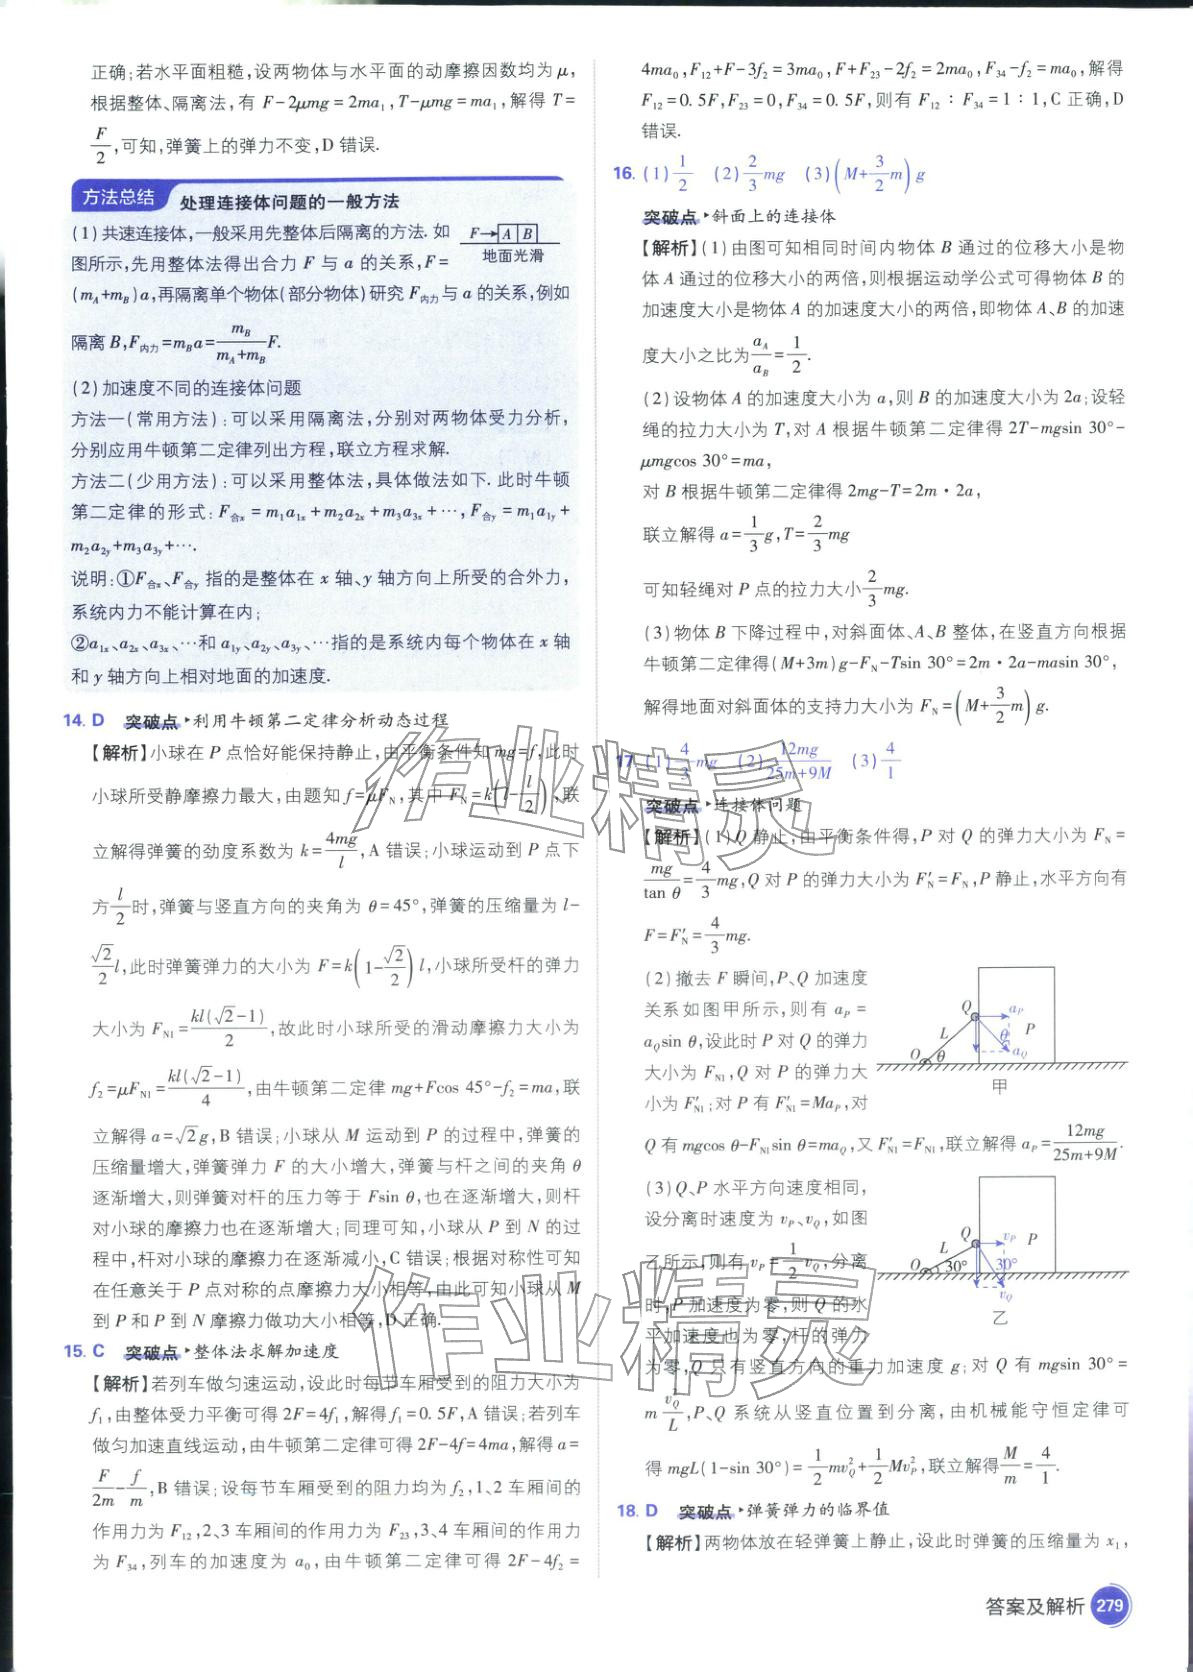 正确;若水平面粗糙,设两物体与水平面的动摩擦因数均为 μ,
根据整体、隔离法,有 F-2μmg=2ma₁,T-μmg=ma₁,解得 T=
F/2,可知,弹簧上的弹力不变,D 错误.
方法总结 处理连接体问题的一般方法
(1)共速连接体,一般采用先整体后隔离的方法. 如
图所示,先用整体法得出合力 F 与 a 的关系,F=
(m_A+m_B)a,再隔离单个物体(部分物体)研究 F内力与 a 的关系,例如
隔离 B,F内力=m_B a=m_B/(m_A+m_B) F.
F→ A B
地面光滑
(2)加速度不同的连接体问题
方法一(常用方法):可以采用隔离法,分别对两物体受力分析,
分别应用牛顿第二定律列出方程,联立方程求解.
方法二(少用方法):可以采用整体法,具体做法如下. 此时牛顿
第二定律的形式:F合x=m₁a₁ₓ+m₂a₂ₓ+m₃a₃ₓ+⋯,F合y=m₁a₁y+
m₂a₂y+m₃a₃y+⋯.
说明:①F合x、F合y 指的是整体在 x 轴、y 轴方向上所受的合外力,
系统内力不能计算在内;
②a₁ₓ、a₂ₓ、a₃ₓ、⋯和 a₁y、a₂y、a₃y、⋯指的是系统内每个物体在 x 轴
和 y 轴方向上相对地面的加速度.
14. D 突破点 ▸ 利用牛顿第二定律分析动态过程
【解析】小球在 P 点恰好能保持静止,由平衡条件知 mg=f,此时
小球所受静摩擦力最大,由题知 f=μF_N,其中 F_N=k(l-l/2),联
立解得弹簧的劲度系数为 k=4mg/l,A 错误;小球运动到 P 点下
方l/2时,弹簧与竖直方向的夹角为 θ=45°,弹簧的压缩量为 l-
√2/2 l,此时弹簧弹力的大小为 F=k(1-√2/2)l,小球所受杆的弹力
大小为 F_N1=kl(√2-1)/2,故此时小球所受的滑动摩擦力大小为
f₂=μF_N1=kl(√2-1)/4,由牛顿第二定律 mg+Fcos 45°-f₂=ma,联
立解得 a=√2g,B 错误;小球从 M 运动到 P 的过程中,弹簧的
压缩量增大,弹簧弹力 F 的大小增大,弹簧与杆之间的夹角 θ
逐渐增大,则弹簧对杆的压力等于 Fsin θ,也在逐渐增大,则杆
对小球的摩擦力也在逐渐增大;同理可知,小球从 P 到 N 的过
程中,杆对小球的摩擦力在逐渐减小,C 错误;根据对称性可知
在任意关于 P 点对称的点摩擦力大小相等,由此可知小球从 M
到 P 和 P 到 N 摩擦力做功大小相等,D 正确.
15. C 突破点 ▸ 整体法求解加速度
【解析】若列车做匀速运动,设此时每节车厢受到的阻力大小为
f₁,由整体受力平衡可得 2F=4f₁,解得 f₁=0.5F,A 错误;若列车
做匀加速直线运动,由牛顿第二定律可得 2F-4f=4ma,解得 a=
F/2m-f/m,B 错误;设每节车厢受到的阻力均为 f₂,1、2 车厢间的
作用力为 F₁₂,2、3 车厢间的作用力为 F₂₃,3、4 车厢间的作用力
为 F₃₄,列车的加速度为 a₀,由牛顿第二定律可得 2F-4f₂=
4ma₀,F₁₂+F-3f₂=3ma₀,F+F₂₃-2f₂=2ma₀,F₃₄-f₂=ma₀,解得
F₁₂=0.5F,F₂₃=0,F₃₄=0.5F,则有 F₁₂∶F₃₄=1∶1,C 正确,D
错误.
16. (1)1/2 (2)2/3 mg (3)(M+3/2 m)g
突破点 ▸ 斜面上的连接体
【解析】(1)由图可知相同时间内物体 B 通过的位移大小是物
体 A 通过的位移大小的两倍,则根据运动学公式可得物体 B 的
加速度大小是物体 A 的加速度大小的两倍,即物体 A、B 的加速
度大小之比为a_A/a_B=1/2.
(2)设物体 A 的加速度大小为 a,则 B 的加速度大小为 2a;设轻
绳的拉力大小为 T,对 A 根据牛顿第二定律得 2T-mgsin 30°-
μmgcos 30°=ma,
对 B 根据牛顿第二定律得 2mg-T=2m·2a,
联立解得 a=1/3 g,T=2/3 mg
可知轻绳对 P 点的拉力大小2/3 mg.
(3)物体 B 下降过程中,对斜面体、A、B 整体,在竖直方向根据
牛顿第二定律得(M+3m)g-F_N-Tsin 30°=2m·2a-masin 30°,
解得地面对斜面体的支持力大小为 F_N=(M+3/2 m)g.
17. (1)4/3 mg (2)12mg/(25m+9M) (3)4/1
突破点 ▸ 连接体问题
【解析】(1)Q 静止,由平衡条件得,P 对 Q 的弹力大小为 F_N=
mg/tan θ=4/3 mg,Q 对 P 的弹力大小为 F′_N=F_N,P 静止,水平方向有
F=F′_N=4/3 mg.
(2)撤去 F 瞬间,P、Q 加速度
关系如图甲所示,则有 a_P=
a_Q sin θ,设此时 P 对 Q 的弹力
大小为 F_N1,Q 对 P 的弹力大
小为 F′_N1;对 P 有 F′_N1=Ma_P,对
Q 有 mgcos θ-F_N1 sin θ=ma_Q,又 F′_N1=F_N1,联立解得 a_P=12mg/(25m+9M).
Q a_P
L θ P
O θ a_Q
甲
(3)Q、P 水平方向速度相同,
设分离时速度为 v_P、v_Q,如图
乙所示,则有 v_P=1/2 v_Q,分离
时,P 加速度为零,则 Q 的水
平加速度也为零,杆的弹力
为零,Q 只有竖直方向的重力加速度 g;对 Q 有 mgsin 30°=
m v²_Q/L,P、Q 系统从竖直位置到分离,由机械能守恒定律可
得 mgL(1-sin 30°)=1/2 mv²_Q+1/2 Mv²_P,联立解得M/m=4/1.
Q v_P P
L
O 30° 30°
v_Q
乙
18. D 突破点 ▸ 弹簧弹力的临界值
【解析】两物体放在轻弹簧上静止,设此时弹簧的压缩量为 x₁,
作业精灵
作业精灵
答案及解析 279